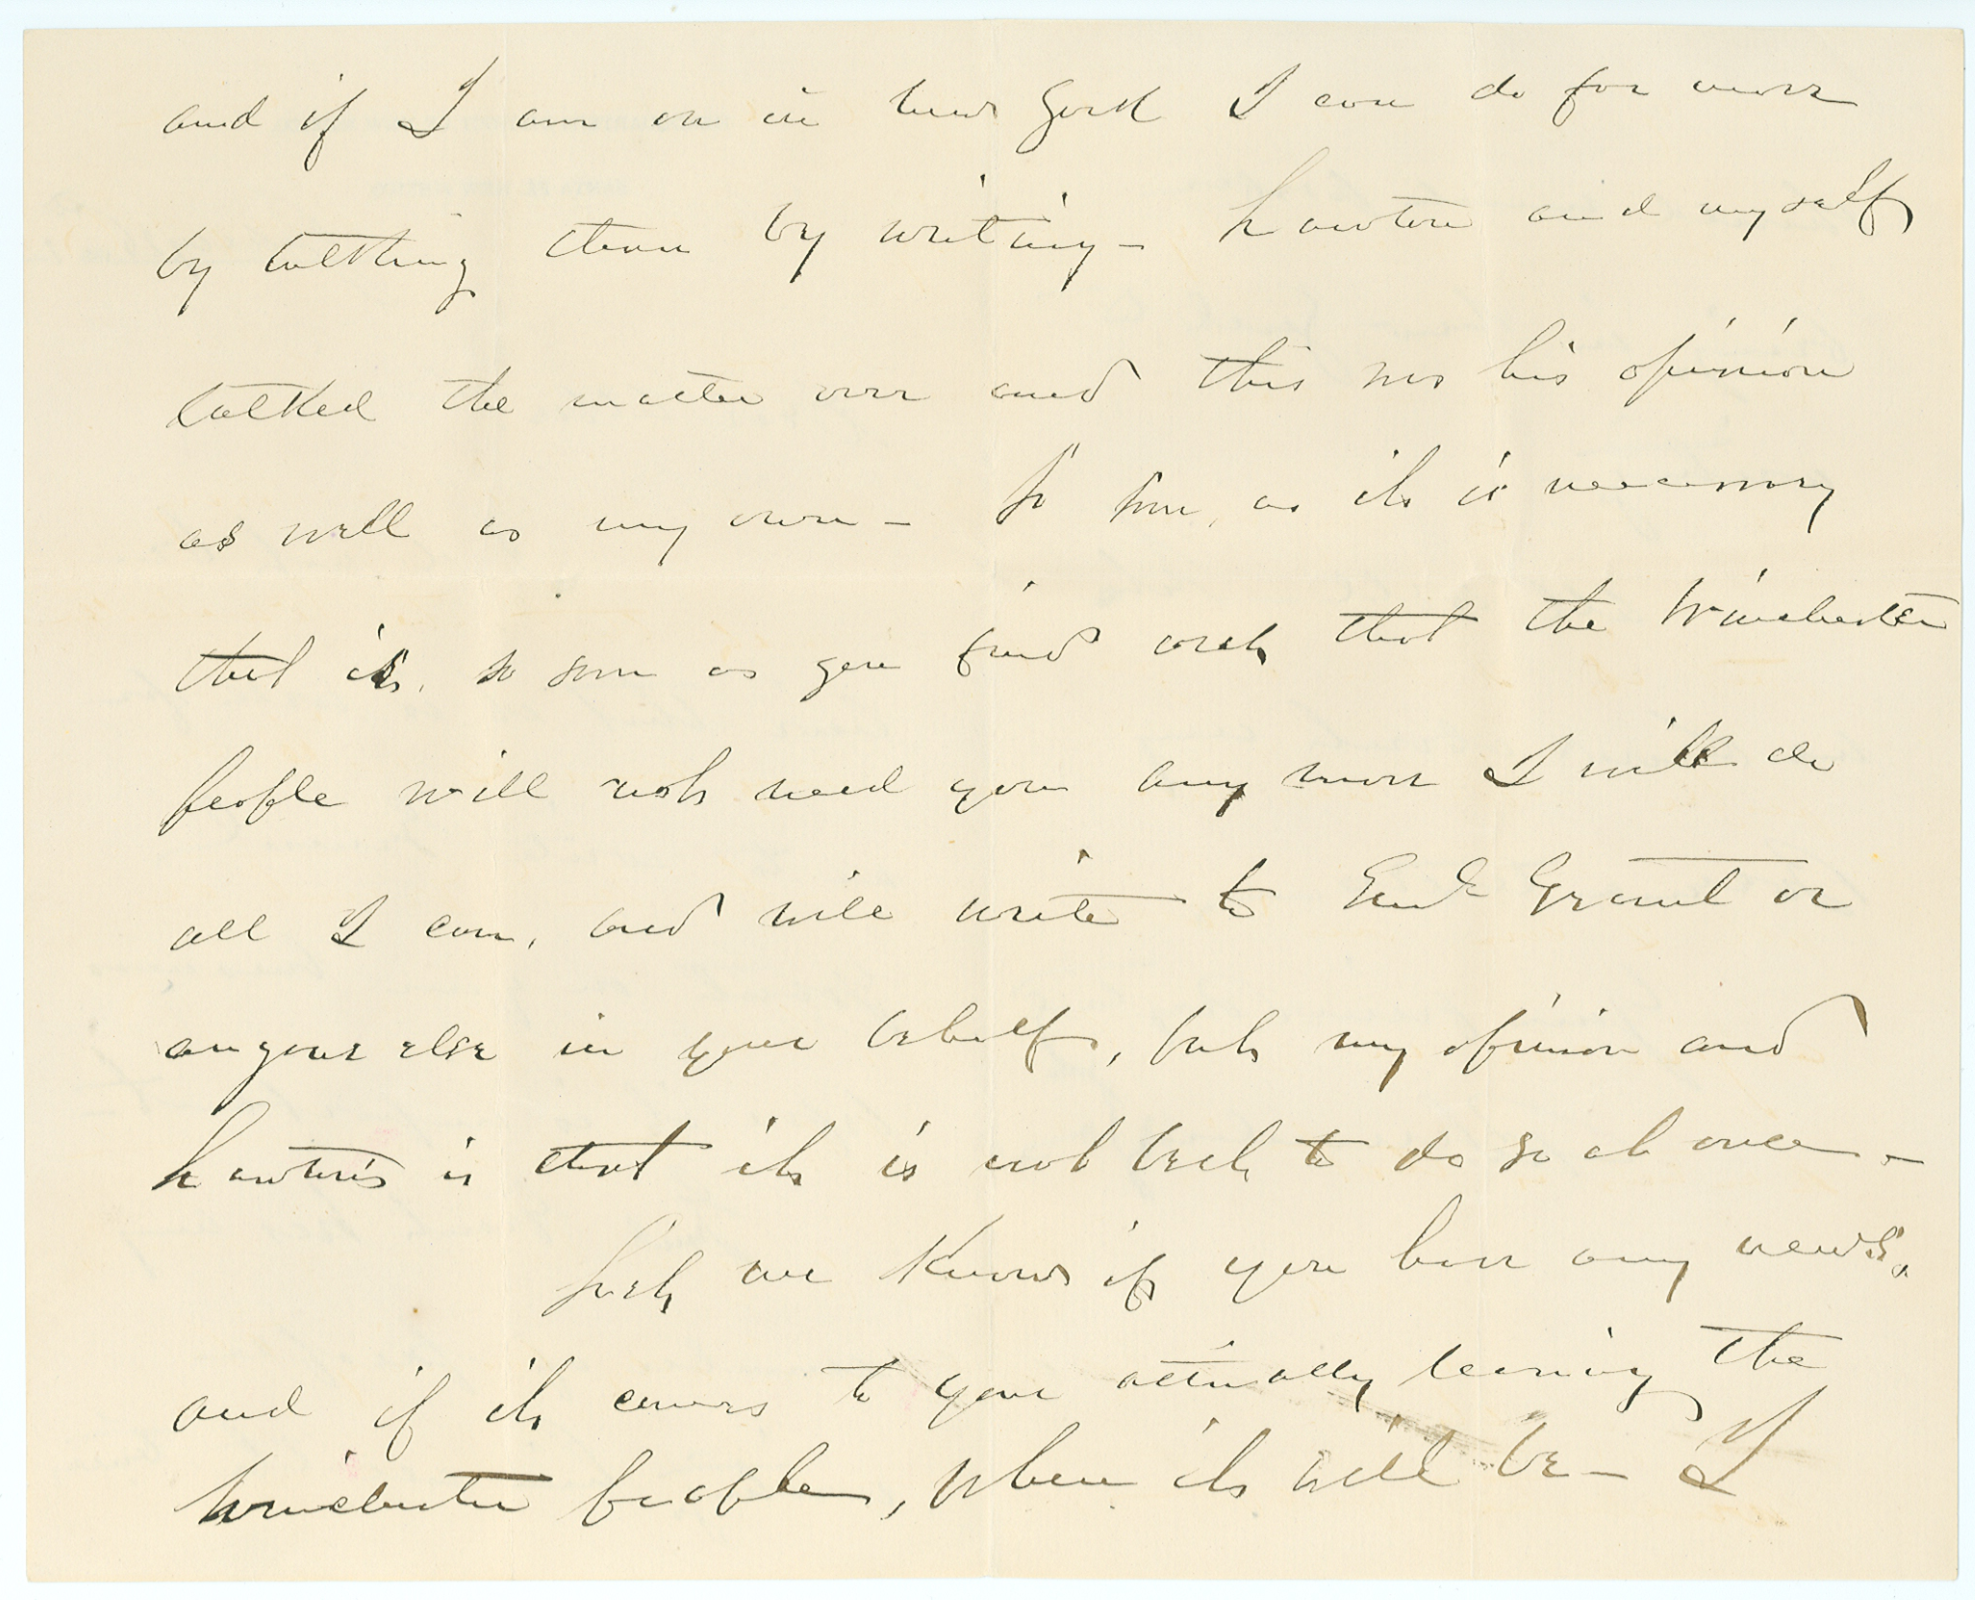 and if I am on in New York I can do far more
by talking than by writing - Lawton and myself
talked the matter over and this was his opinion
as well as my own - So soon, as it is necessary
that is, so soon as you find out that the Winchester
people will not need you any more I will do
all I can, and will write to Genl Grant or
anyone else in your behalf, but my opinion and
Lawton's is that it is not best to do so at once -
Let me know if you have any news,
and if it comes to your actually leaving the
Winchester people, when it will be - I